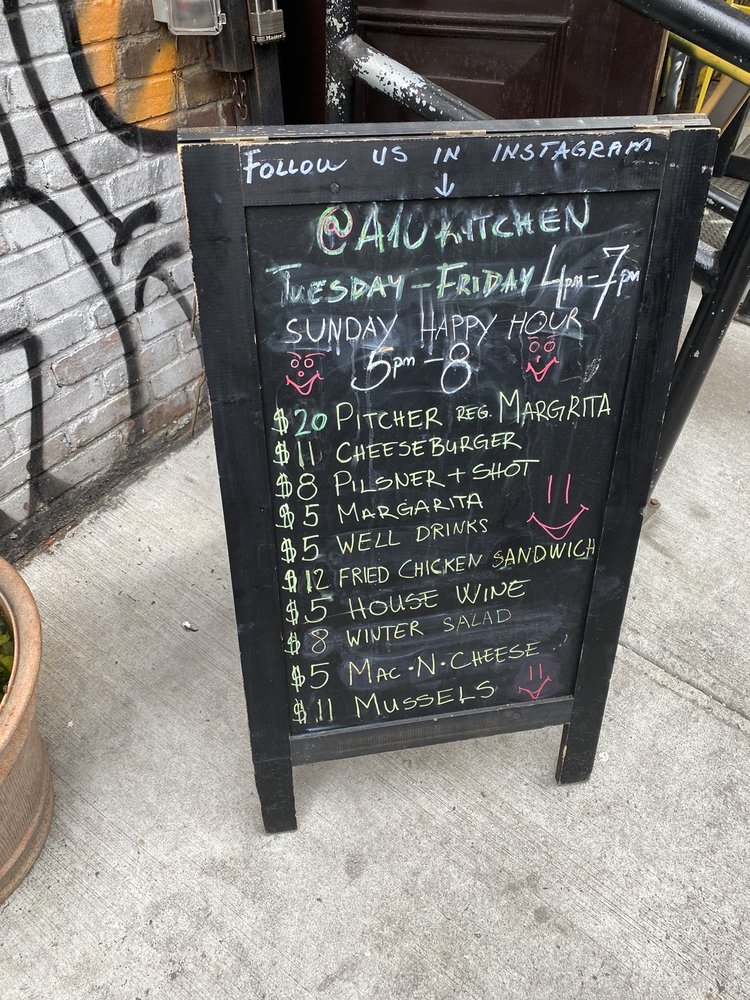 Master
FOLLOW US IN INSTAGRAM
@A10KITCHEN
TUESDAY - FRIDAY 4pm-7pm
SUNDAY HAPPY HOUR
5pm-8
$20 PITCHER REG. MARGRITA
$11 CHEESEBURGER
$8 PILSNER + SHOT
$5 MARGARITA
$5 WELL DRINKS
$12 FRIED CHICKEN SANDWICH
$5 HOUSE WINE
$8 WINTER SALAD
$5 MAC·N·CHEESE
$11 MUSSELS